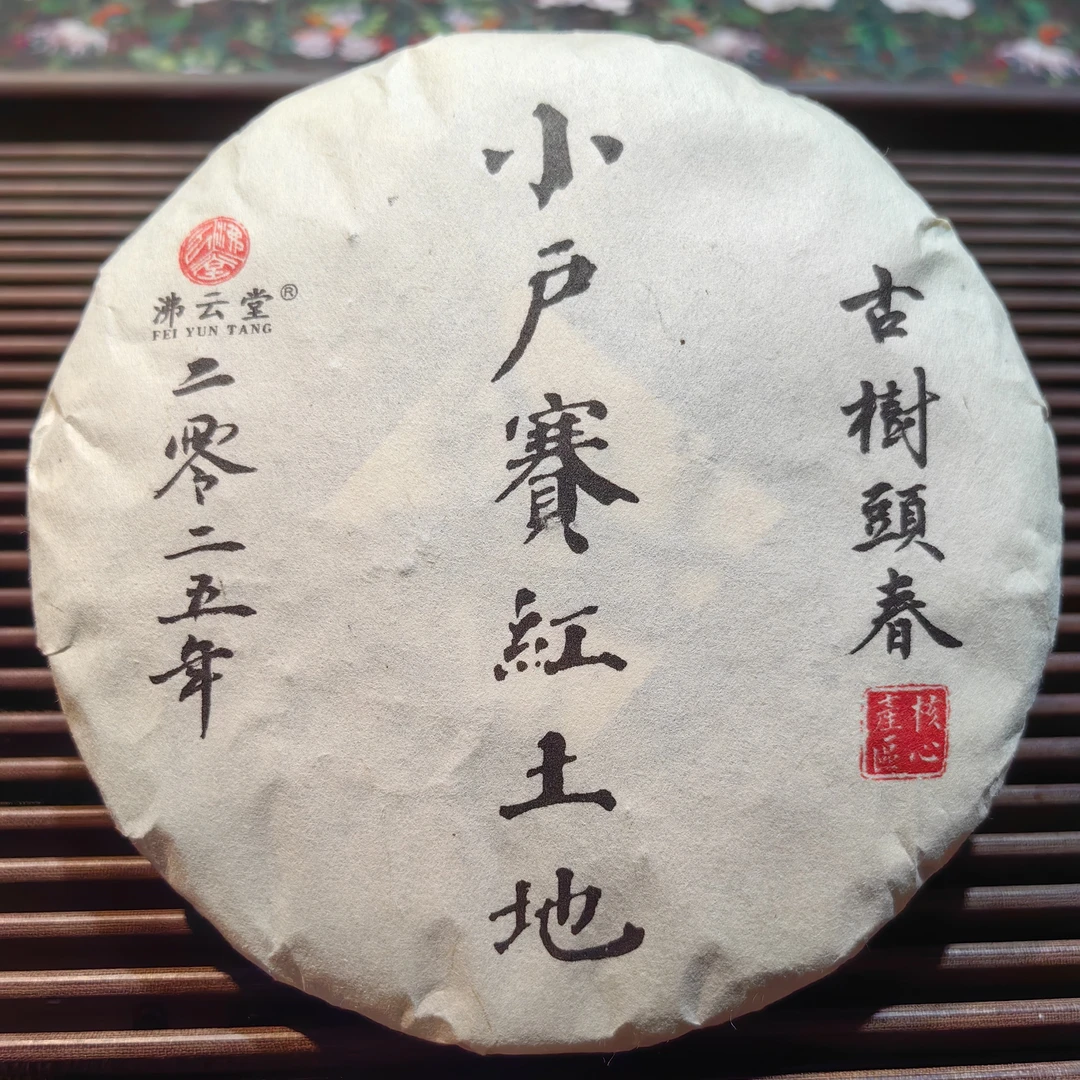 古樹頭春
核心
產區
小户賽紅土地
沸云堂
沸云堂®
FEI YUN TANG
二零二五年